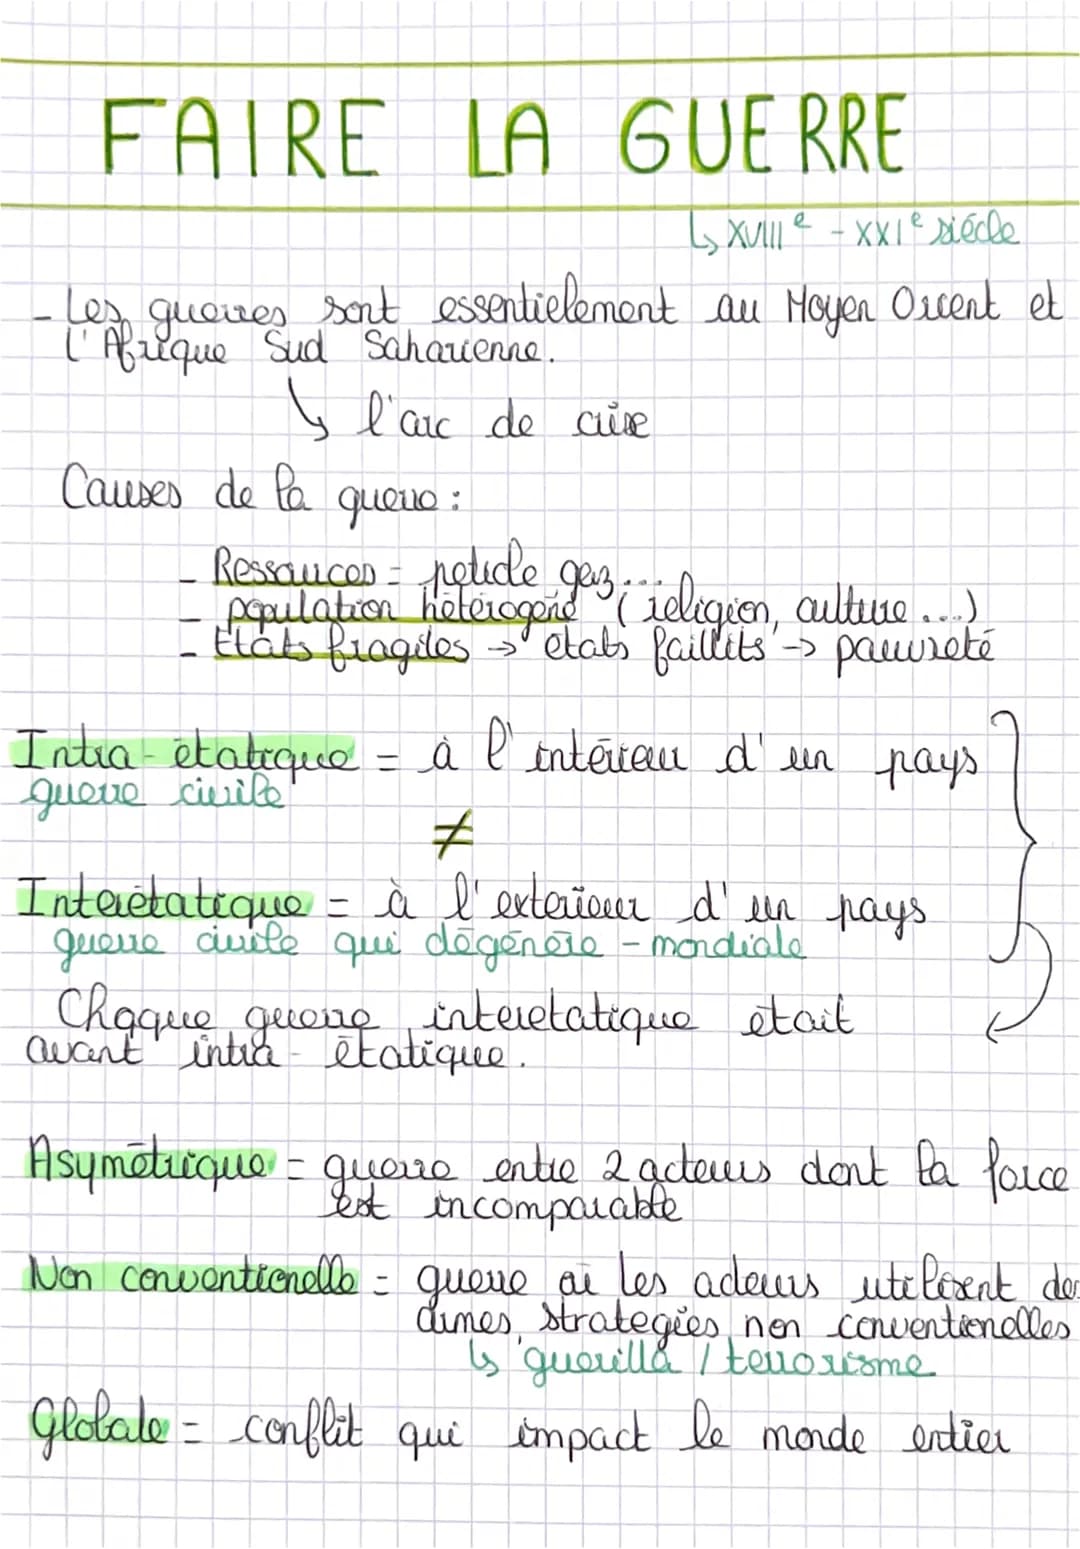 FAIRE LA GUERRE
↳ XVIIIe - XXIe siécle
- Les guerres sont essentielement au Moyen Orient et
l'Afrique Sud Saharienne.
↘ l'arc de crise
Causes de la guerre :
- Ressources = petrole gaz...
- population hétérogéne (religion, culture ...)
- Etats fragiles → etats faillits → pauvreté
Intra-étatique = à l'intérieur d'un pays
guerre civile
≠
Interétatique = à l'exterieur d'un pays
guerre civile qui dégénére - mondiale
Chaque guerre interetatique était
avant intra-étatique.
Asymétrique = guerre entre 2 acteurs dont la force
est incomparable
Non conventionelle = guerre où les acteurs utilisent des
armes, strategies non conventionelles
↳ guerilla / terrorisme
Globale = conflit qui impact le monde entier